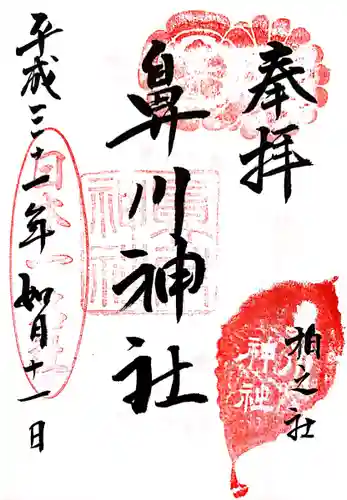 奉拝
柏之社
鼻川神社
平成三十一年如月十一日